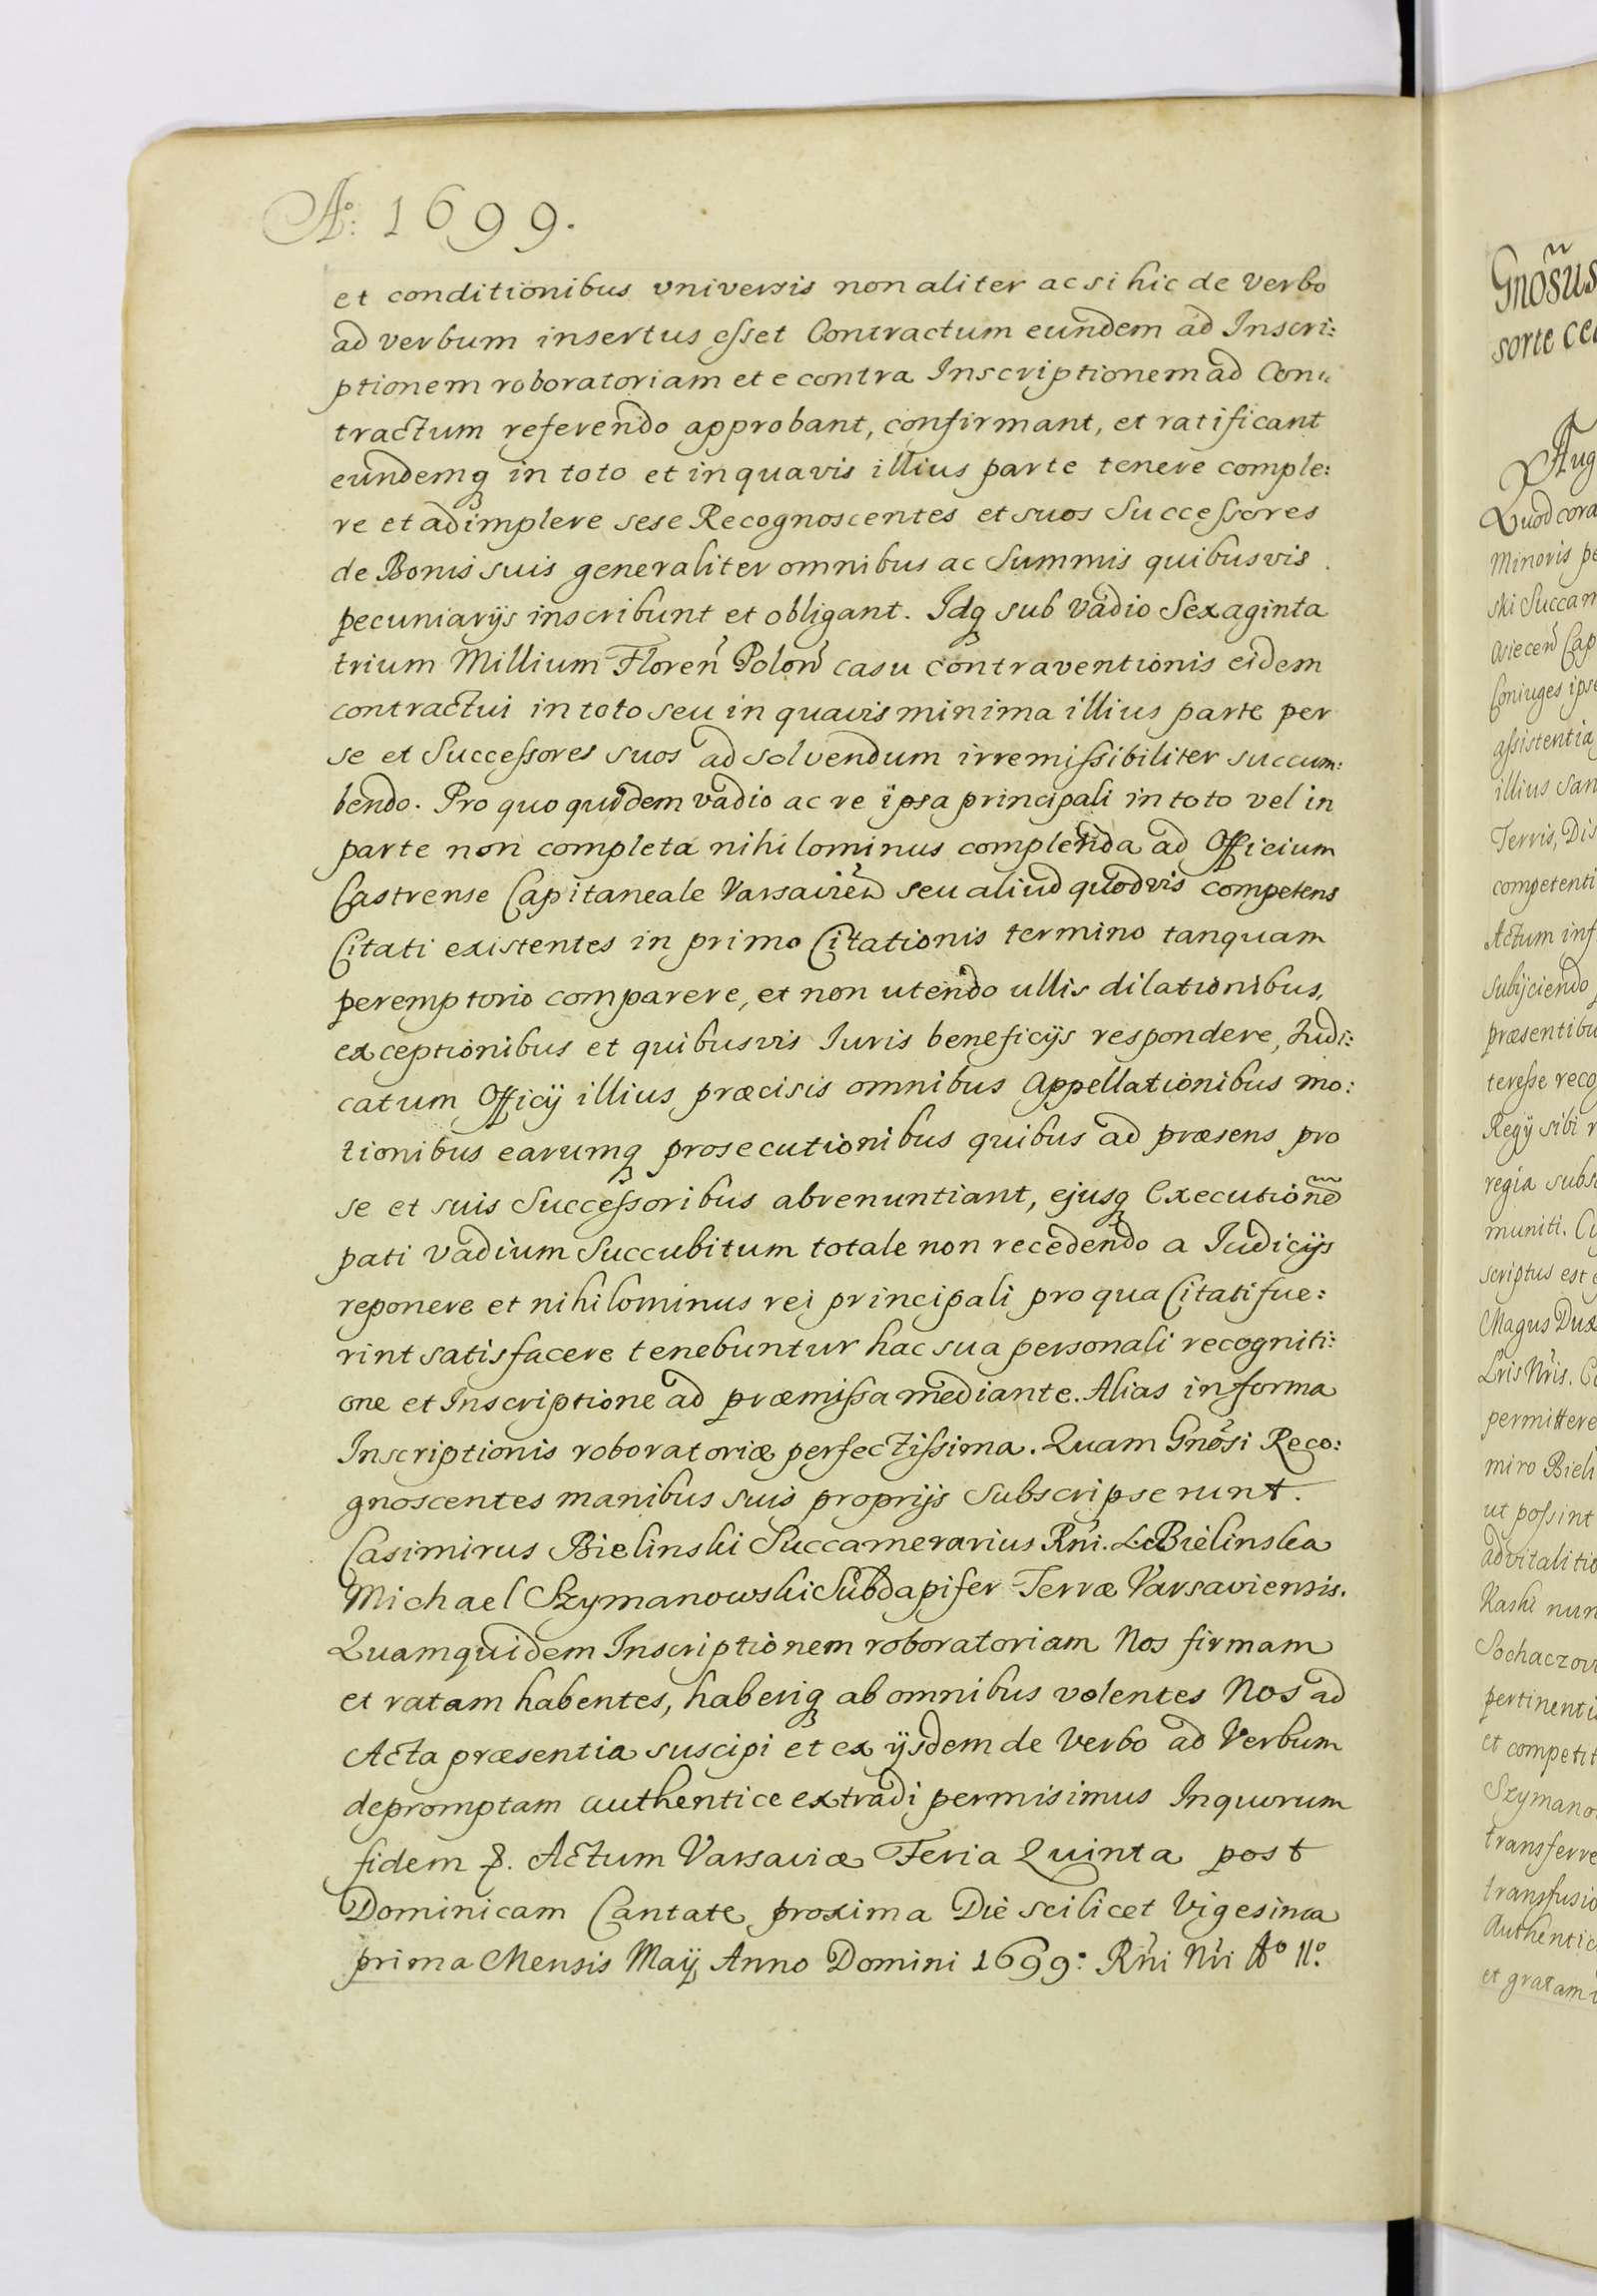 Aº: 1699.
et conditionibus vniversis non aliter ac si hic de verbo
ad verbum insertus esset Contractum eundem ad Inscri:
ptionem roboratoriam et e contra Inscriptionem ad Con:
tractum referendo approbant, confirmant, et ratificant
eundemq in toto et in quavis illius parte tenere comple:
re et adimplere sese Recognoscentes et suos Successores
de Bonis suis generaliter omnibus ac Summis quibusvis
pecuniarijs inscribunt et obligant. Idq sub vadio Sexaginta
trium Millium Floren Polon casu contraventionis eidem
contractui in toto seu in quavis minima illius parte per
se et Successores suos ad solvendum irremissibiliter succum:
bendo. Pro quo quidem vadio ac re ipsa principali in toto vel in
parte non completa nihilominus complenda ad Officium
Castrense Capitaneale Varsavien seu aliud quodvis competens
Citati existentes in primo Citationis termino tanquam
peremptorio comparere, et non utendo ullis dilationibus,
exceptionibus et quibusvis Iuris beneficijs respondere, Iudi:
catum Officij illius præcisis omnibus Appellationibus mo:
tionibus earumq prosecutionibus quibus ad præsens pro
se et suis Successoribus abrenuntiant, ejusq Executione͂
pati vadium Succubitum totale non recedendo a Iudicijs
reponere et nihilominus rei principali pro qua Citati fue:
rint satisfacere tenebuntur hac sua personali recogniti:
one et Inscriptione ad præmissa mediante. Alias in forma
Inscriptionis roboratoriæ perfectissima. Quam Gnosi Reco:
gnoscentes manibus suis proprijs Subscripserunt.
Casimirus Bielinski Succamerarius Rni. L. Bielinska
Michael Szymanowski Subdapifer Terræ Varsaviensis.
Quamquidem Inscriptionem roboratoriam Nos firmam
et ratam habentes, haberiq ab omnibus volentes Nos ad
Acta præsentia suscipi et ex ijsdem de Verbo ad Verbum
depromptam authentice extradi permisimus Inquorum
fidem &. Actum Varsaviæ Feria Quinta post
Dominicam Cantate proxima Die scilicet Vigesima
prima Mensis Maij Anno Domini 1699: Rni Nri Aº IIº.
Gnosus
sorte
Aug
Quod cora
Minoris pe
ski Succam
Cap
Coniuges ipse
assistentia
illius San
Terris, Dis
competenti
Actum inf
Subijciendo
præsentibu
teresse reco
Regij sibi r
regia subs
muniti. Cu
scriptus est
Magus Dux
Lris Nris. C
permittere
miro Bieli
ut possint
advitalitio
nun
Sochaczow
pertinenti
et competit
Szymano
transferre
transfusio
Authentic
et gratam